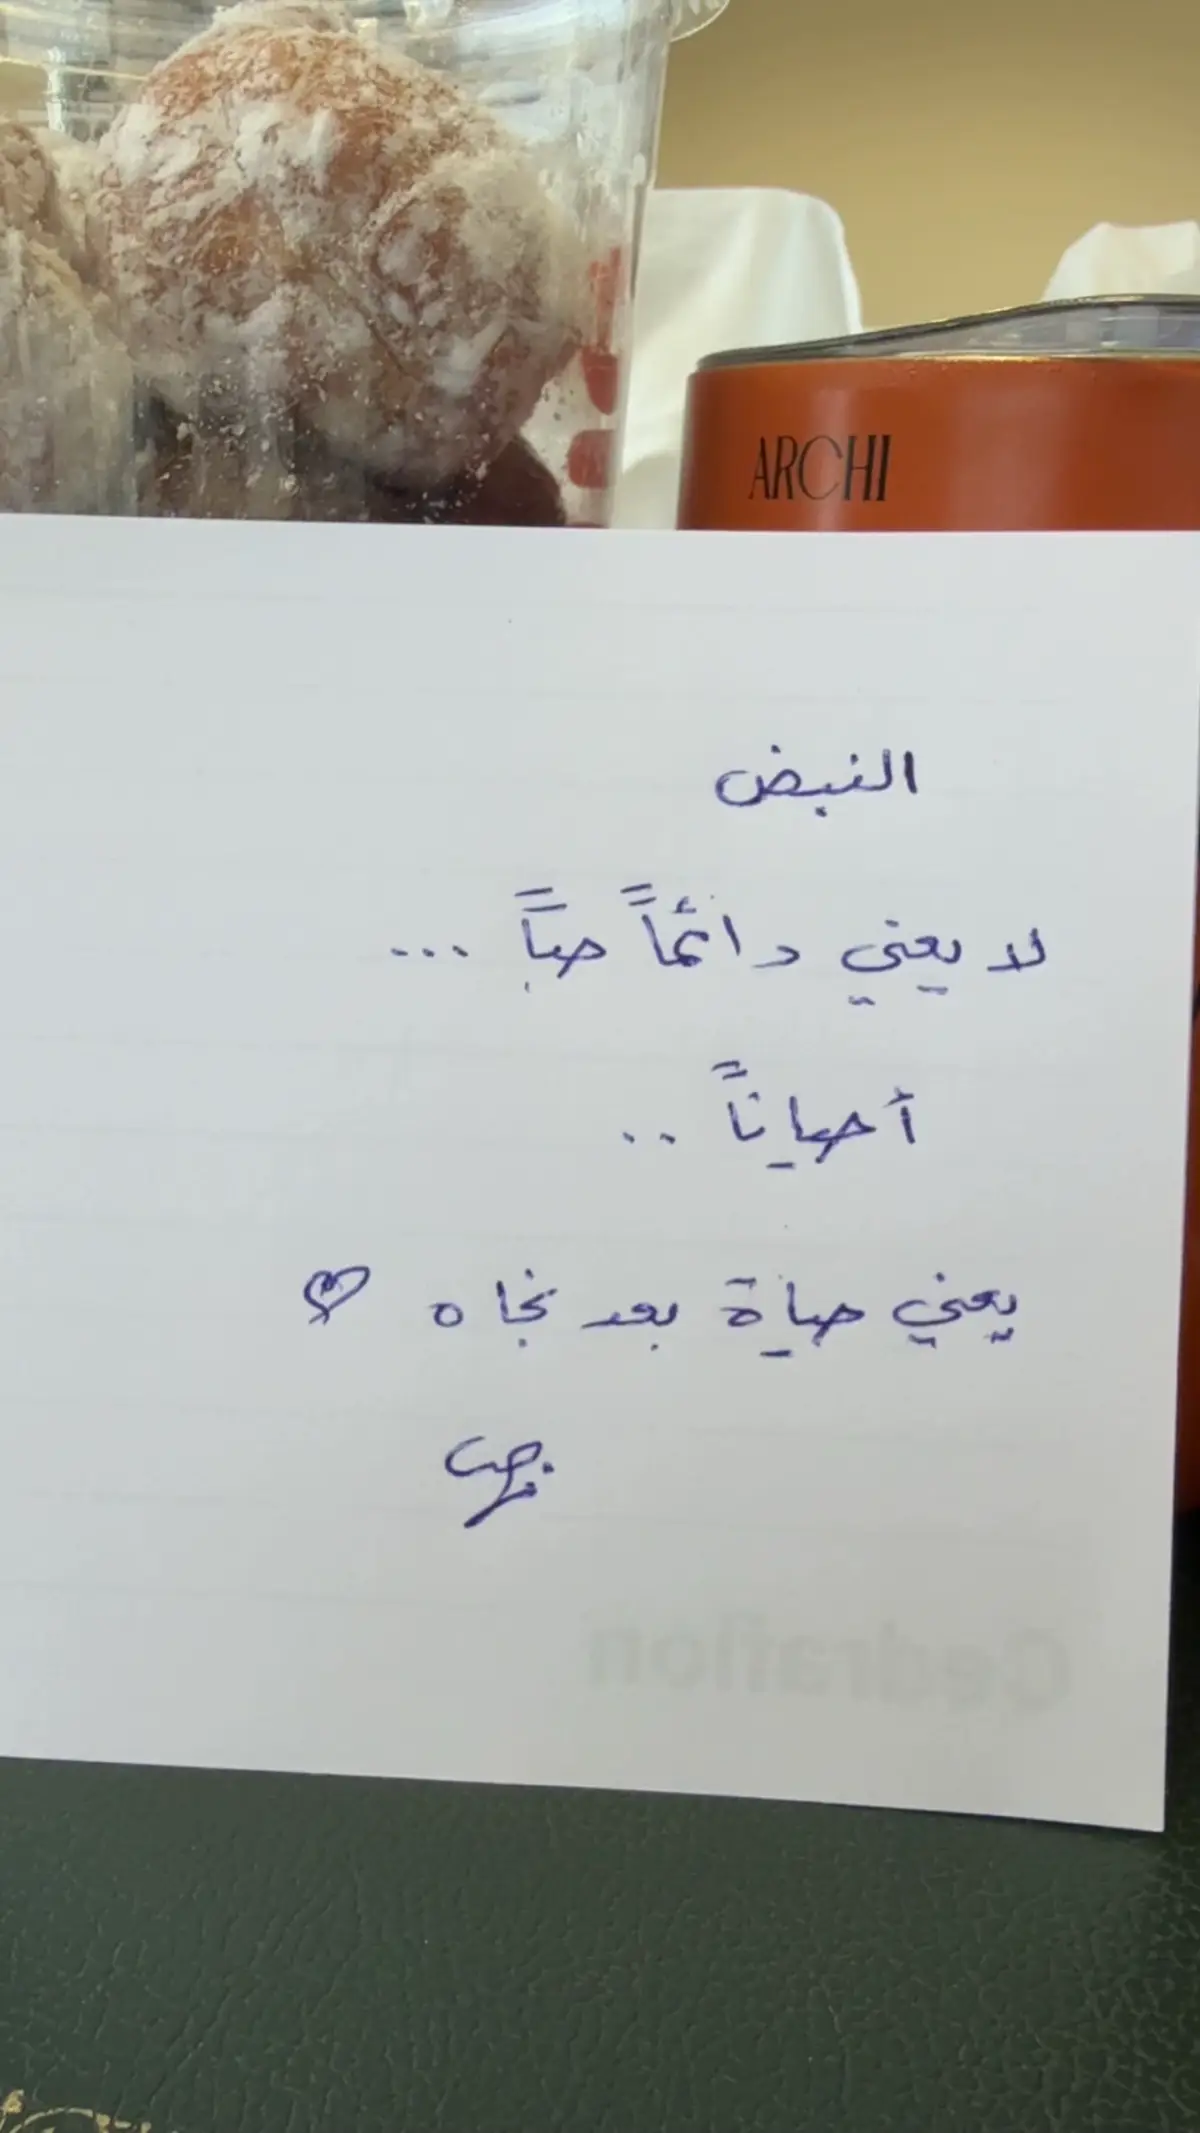 ARCHI
النبض
لا يعني دائماً حباً ...
أحياناً ..
يعني حياة بعد نجاه
Cedraflon